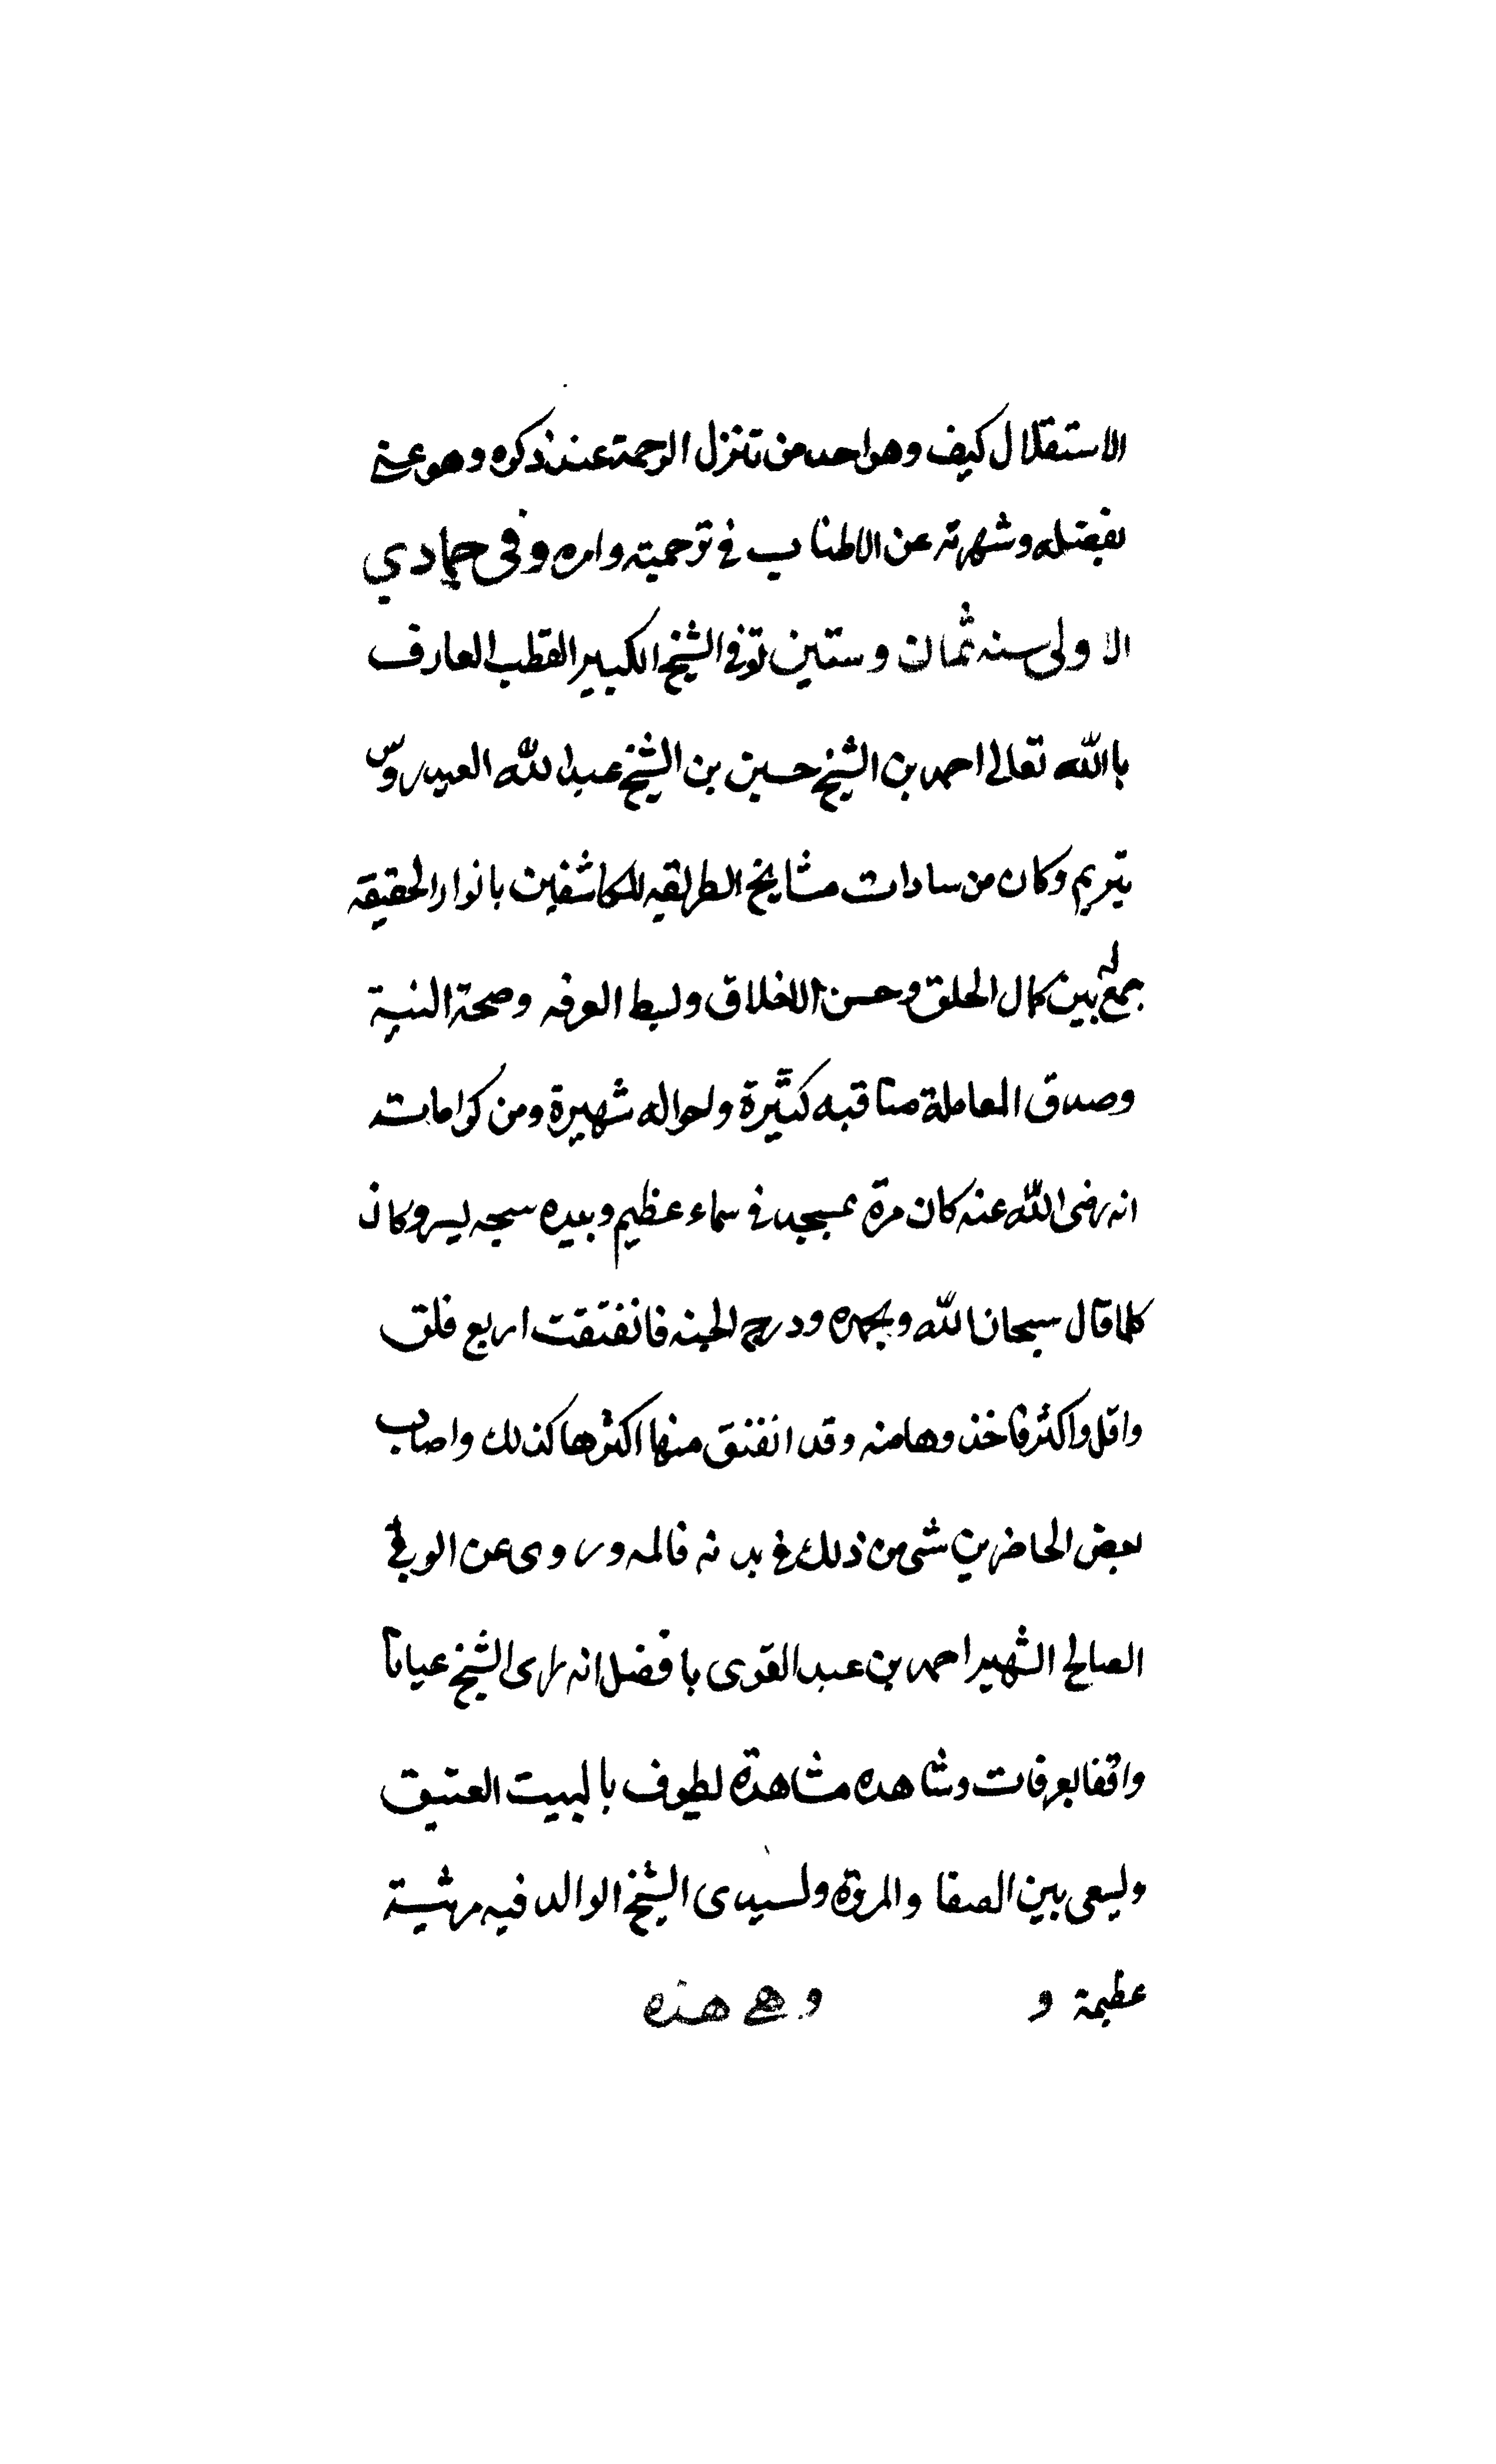 الاستقلال كيف وهو احد من تنزل الرحمة عند ذكره وهو غني
بفضله وشهرته عن الاطناب في ترجمته وامره وفى جمادي
الاولى سنه ثمان وستين توفي الشيخ الكبير القطب العارف
بالله تعالى احمد بن الشيخ حسين بن الشيخ عبدالله العيدروس
بتريم وكان من سادات مشايخ الطريقه المكاشفين بانوار الحقيقه
جمع له بين كمال الخلق وحسن الاخلاق وبسط العرفه وصحة النية
وصدق المعاملة مناقبه كثيرة واحواله شهيرة ومن كراماته
انه رضى الله عنه كان مرة بمسجد في سماء عظيم وبيده سبحه يسر وكان
كلما قال سبحان الله وبحمده ودرج الحبنه فانفتقت اربع فلق
واقل واكثر فاخذوها منه وقد انفتق منها اكثرها كذلك واصاب
بعض الحاضرين شى من ذلك في بدنه فالمه وروى عن الولي
الصالح الشهير احمد بن عبد القوى بافضل انه راى الشيخ عيانا
واقفا بعرفات وشاهده مشاهدة يطوف بالبيت العتيق
ويسعى بين الصفا والمروة ولسيدى الشيخ الوالد فيه مرثية
عظيمة و وهي هذه